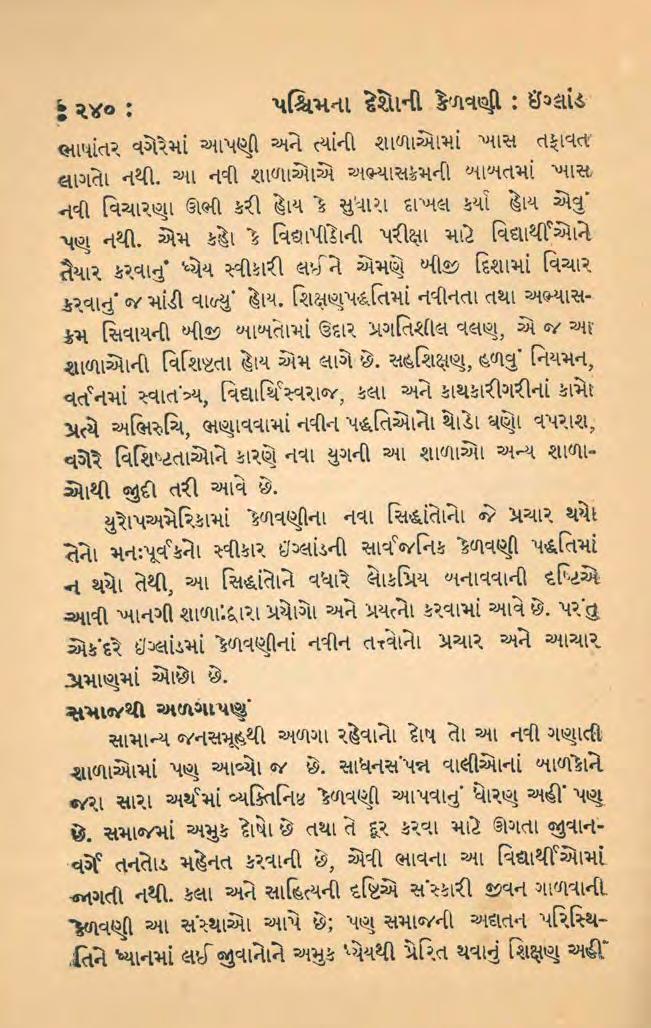 : ૨૪૦ : પશ્ચિમના દેશોની કેળવણી : ઈંગ્લાંડ
ભાષાંતર વગેરેમાં આપણી અને ત્યાંની શાળાઓમાં ખાસ તફાવત
લાગતો નથી. આ નવી શાળાઓએ અભ્યાસક્રમની બાબતમાં ખાસ
નવી વિચારણા ઊભી કરી હોય કે સુધારા દાખલ કર્યા હોય એવું
પણ નથી. એમ કહો કે વિદ્યાપીઠોની પરીક્ષા માટે વિદ્યાર્થીઓને
તૈયાર કરવાનું ધ્યેય સ્વીકારી લઈને એમણે બીજી દિશામાં વિચાર
કરવાનું જ માંડી વાળ્યું હોય. શિક્ષણપદ્ધતિમાં નવીનતા તથા અભ્યાસ-
ક્રમ સિવાયની બીજી બાબતોમાં ઉદાર પ્રગતિશીલ વલણ, એ જ આ
શાળાઓની વિશિષ્ટતા હોય એમ લાગે છે. સહશિક્ષણ, હળવું નિયમન,
વર્તનમાં સ્વાતંત્ર્ય, વિદ્યાર્થિસ્વરાજ, કલા અને કાથકારીગરીનાં કામો
પ્રત્યે અભિરુચિ, ભણાવવામાં નવીન પદ્ધતિઓનો થોડો ઘણો વપરાશ,
વગેરે વિશિષ્ટતાઓને કારણે નવા યુગની આ શાળાઓ અન્ય શાળા-
ઓથી જુદી તરી આવે છે.
યુરોપઅમેરિકામાં કેળવણીના નવા સિદ્ધાંતોનો જે પ્રચાર થયો
તેનો મનઃપૂર્વકનો સ્વીકાર ઈંગ્લાંડની સાર્વજનિક કેળવણી પદ્ધતિમાં
ન થયો તેથી, આ સિદ્ધાંતોને વધારે લોકપ્રિય બનાવવાની દૃષ્ટિએ
આવી ખાનગી શાળાઃદ્વારા પ્રયોગો અને પ્રયત્નો કરવામાં આવે છે. પરંતુ
એકંદરે ઈંગ્લાંડમાં કેળવણીનાં નવીન તત્ત્વોનો પ્રચાર અને આચાર
પ્રમાણમાં ઓછો છે.
સમાજથી અળગાપણું
સામાન્ય જનસમૂહથી અળગા રહેવાનો દોષ તો આ નવી ગણાતી
શાળાઓમાં પણ આવ્યો જ છે. સાધનસંપન્ન વાલીઓનાં બાળકોને
જરા સારા અર્થમાં વ્યક્તિનિષ્ઠ કેળવણી આપવાનું ધોરણ અહીં પણ
છે. સમાજમાં અમુક દોષો છે તથા તે દૂર કરવા માટે ઊગતા જુવાન-
વર્ગે તનતોડ મહેનત કરવાની છે, એવી ભાવના આ વિદ્યાર્થીઓમાં
જાગતી નથી. કલા અને સાહિત્યની દૃષ્ટિએ સંસ્કારી જીવન ગાળવાની
કેળવણી આ સંસ્થાઓ આપે છે; પણ સમાજની અદ્યતન પરિસ્થિ-
તિને ધ્યાનમાં લઈ જુવાનોને અમુક ધ્યેયથી પ્રેરિત થવાનું શિક્ષણ અહીં